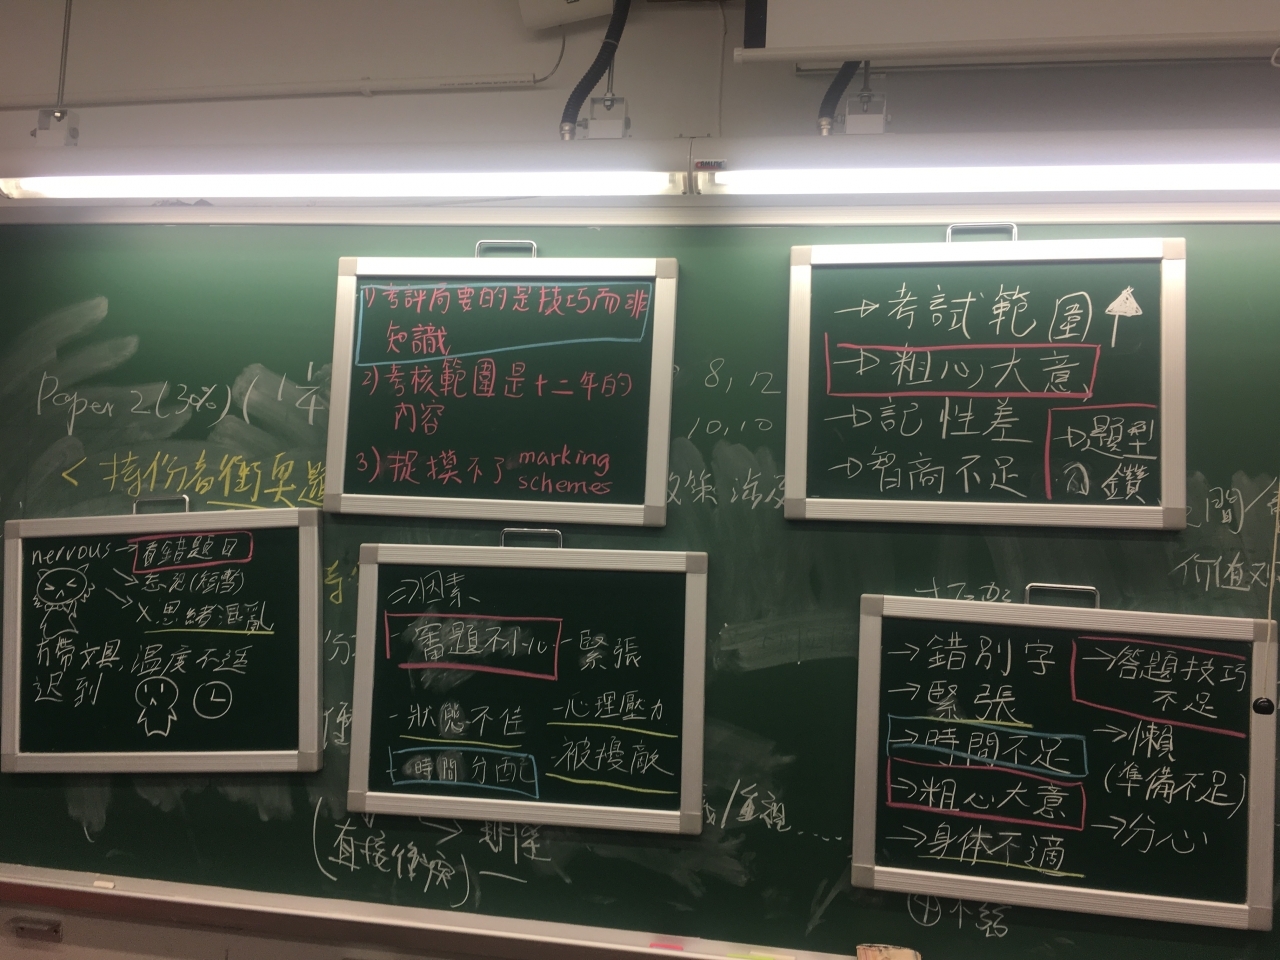 1) 考評局要的是技巧而非
知識
2) 考核範圍是十二年的
內容
3) 捉摸不了 marking
schemes
→考試範圍↑
→粗心大意
→記性差
→智商不足
→題型
鑽
Paper 2 (3%) (1 1/4
8, 12
10, 10
< 持份者衝突題
nervous →看錯題目
→忘記(短暫)
→x思緒混亂
冇帶文具 溫度不适
迟到
⇒因素
- 審題不小心
- 緊張
- 狀態不佳
- 心理壓力
- 時間分配
- 被擾敵
→錯別字
→緊張
→時間不足
→粗心大意
→身体不適
→答題技巧
不足
→懶
(準備不足)
→分心